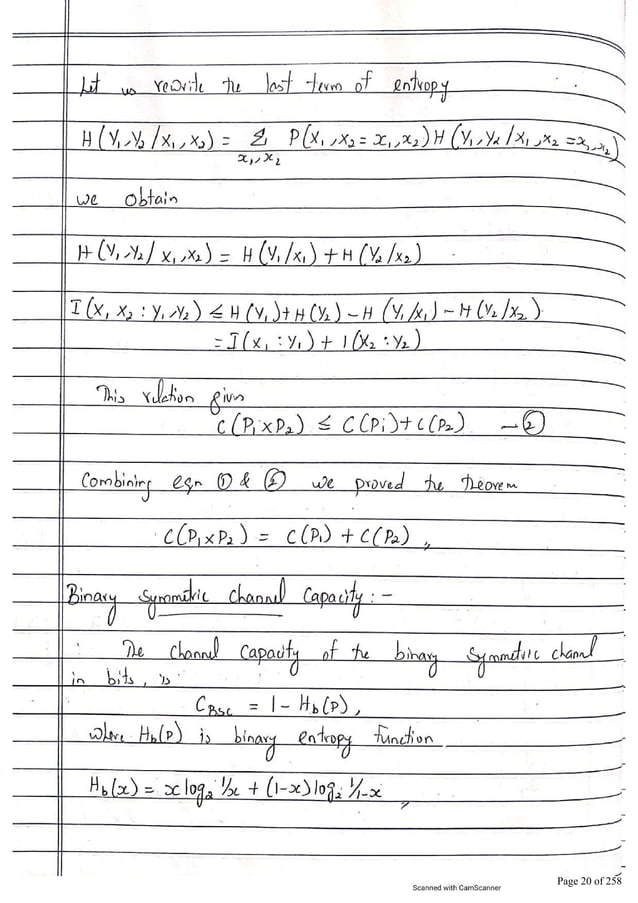 Let us rewrite the last term of entropy
H(Y₁,Y₂/X₁,X₂) = Σ P(X₁,X₂=x₁,x₂) H(Y₁,Y₂/X₁,X₂=x₁,x₂)
x₁,x₂
we obtain
H(Y₁,Y₂/X₁,X₂) = H(Y₁/X₁) + H(Y₂/X₂)
I(X₁X₂:Y₁,Y₂) ≤ H(Y₁)+H(Y₂)-H(Y₁/X₁)-H(Y₂/X₂)
= I(X₁:Y₁) + I(X₂:Y₂)
This relation gives
C(P₁×P₂) ≤ C(P₁)+C(P₂) —②
Combining eqn ① & ② we proved the theorem
C(P₁×P₂) = C(P₁) + C(P₂)„
Binary Symmetric Channel Capacity:-
The channel capacity of the binary symmetric channel
in bits, is
C_BSC = 1-H_b(P),
where H_b(P) is binary entropy function
H_b(x) = x log₂ 1/x + (1-x) log₂ 1/1-x „
Scanned with CamScanner
Page 20 of 258